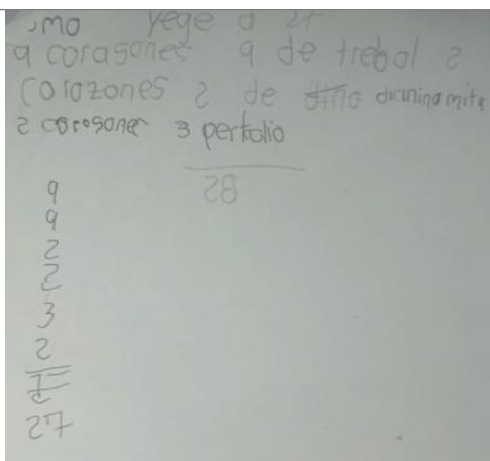 yege a 27
9 corasones 9 de trebol 2
corozones 2 de dianinamite
2 corosones 3 pertolio
28
9
9
2
2
3
2
27